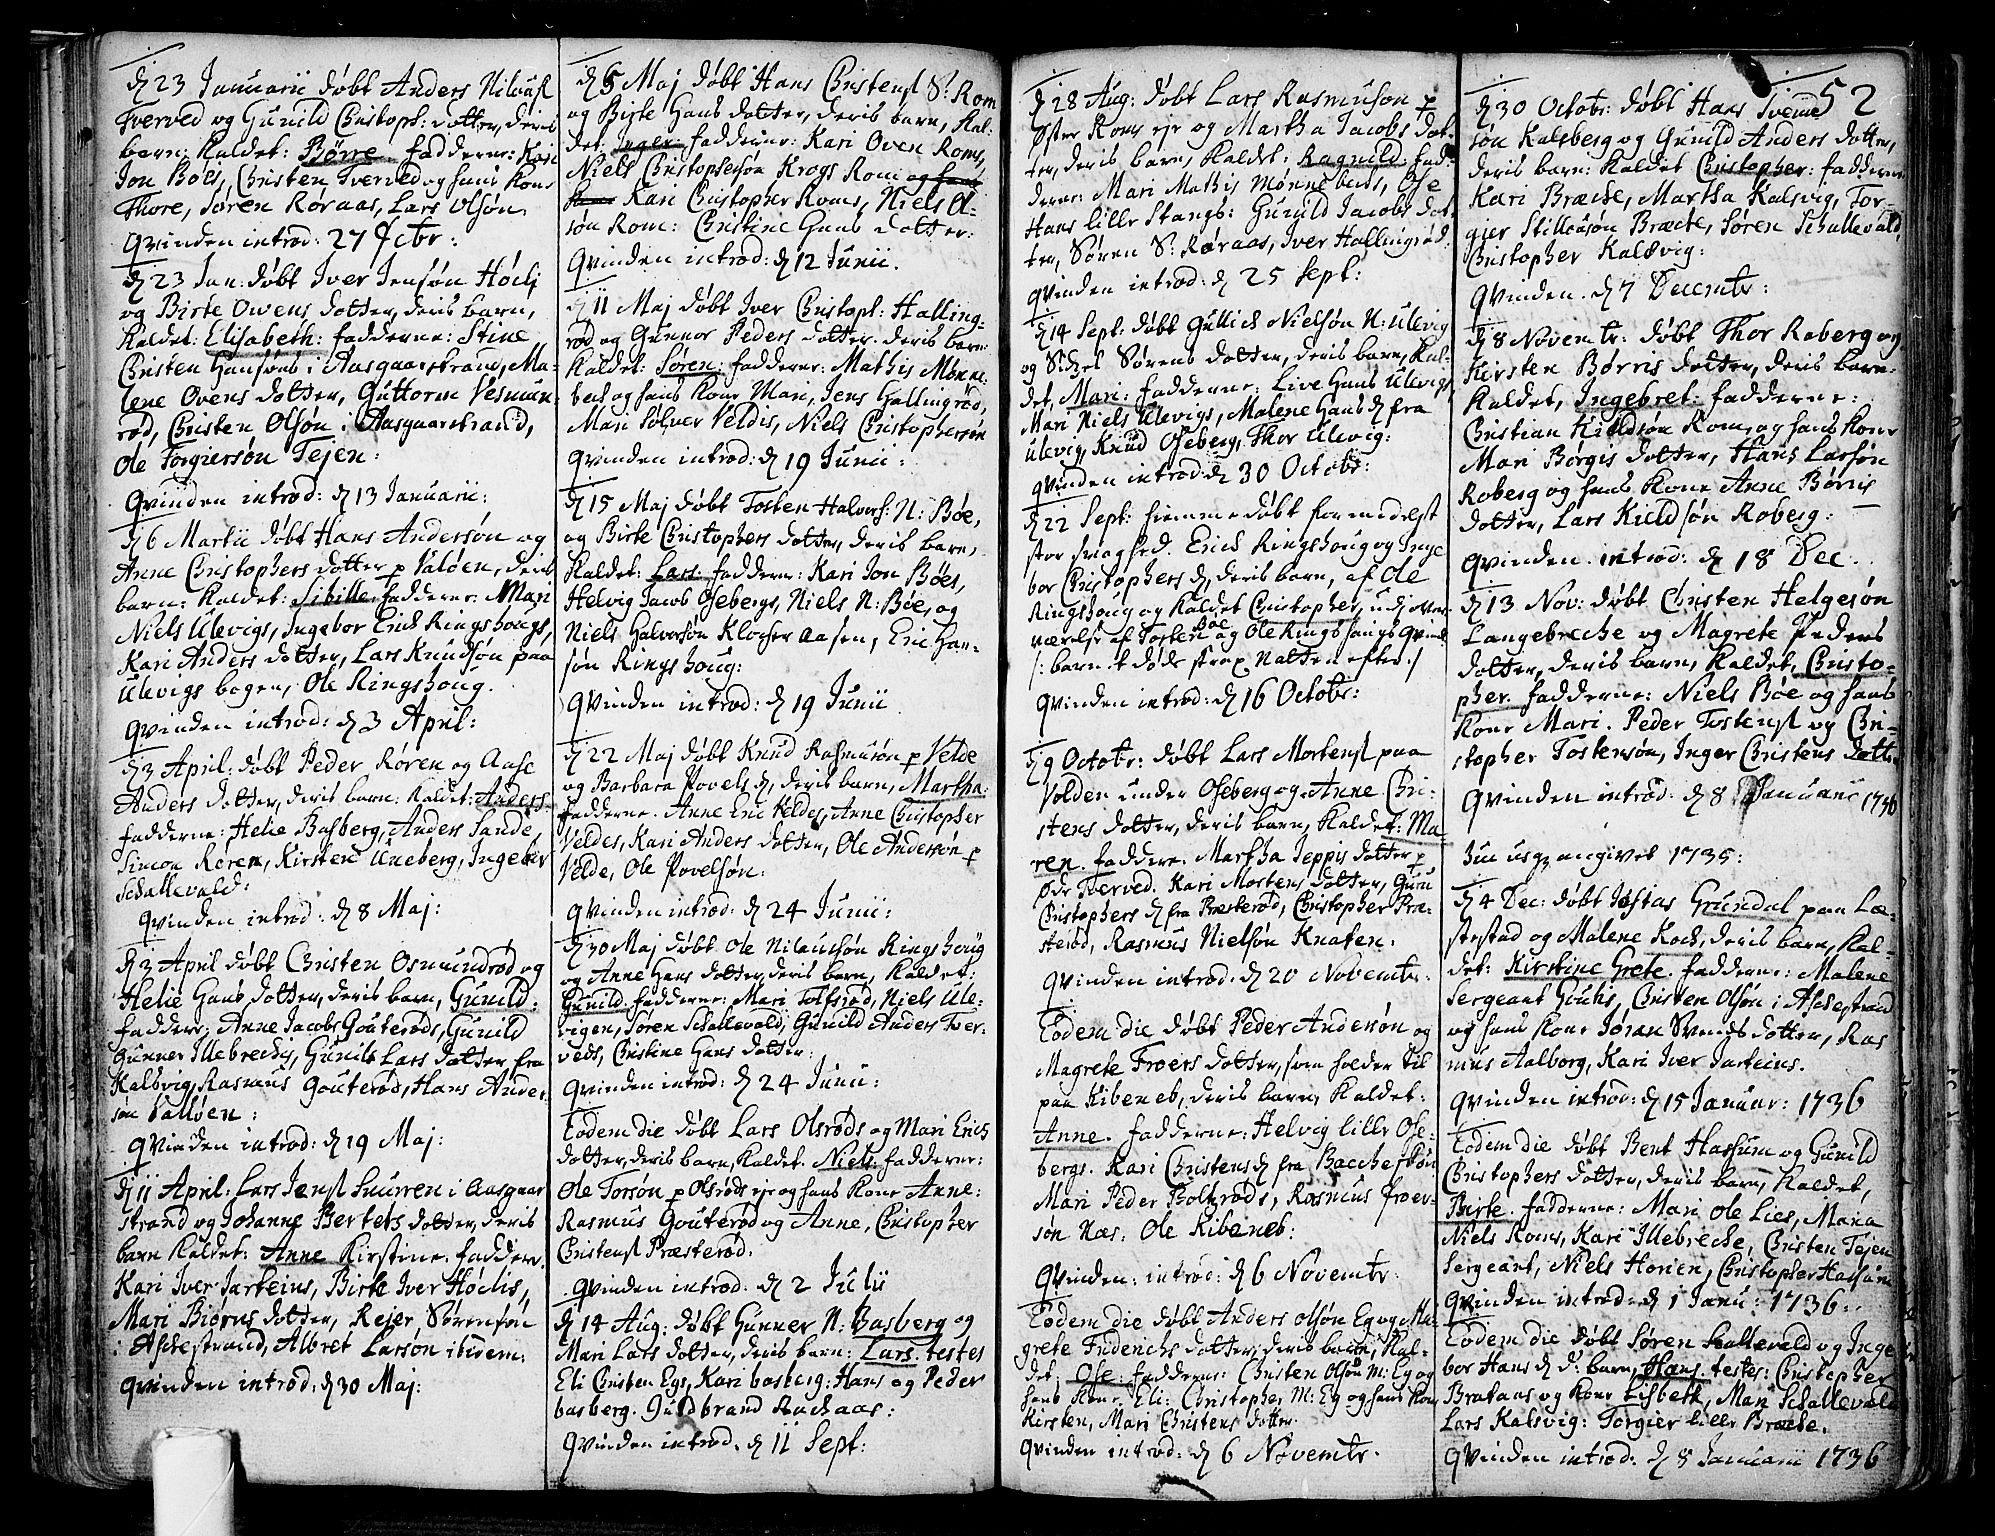 52
d 23 Januarii døbt Anders Nilausß
Tverved og Gunild Christoph: datter, deris
barn: kaldet: Børre fadderne: Kari
Jon Bøes, Christen Tverved og hans kone
Thore, Søren Røraas, Lars Olsøn.
Qvinden introd: 27 Febr:
d 23 Jan: døbt Iver Jensøn Høeli
og Birte Owens dotter, deris barn,
kaldet: Elisabeth: fadderne: Stine
Christen Hansøns i Aasgaarstrand, Ma-
lene Ovens dotter, Guttorm Vesmun-
rød, Christen Olsøn i Aasgaarstrand,
Ole Torgiersøn Tejen:
Qvinden introd: d 13 Januarii:
d 6 Martii døbt Hans Andersøn og
Anne Christophers dotter p Valøen, deris
barn: kaldet: Sibille: fadderne: Mari
Niels Ulevigs, Ingebor Erich Ringshougs,
Kari Anders dotter, Lars Knudsøn paa
Ulevigs bogen, Ole Ringshoug.
Qvinden introd: d 3 April:
d 3 April: døbt Peder Røren og Aase
Anders dotter, deris barn: kaldet: Anders
fadderne: Helie Basberg, Anders Sande,
Simon Røren, Kirsten Uneberg, Ingebor
Schallevald:
Qvinden introd: d 8 Maj:
d 3 April døbt Christen Osmundrød og
Helie Hans dotter, deris barn, Gunild:
faddere: Anne Jacobs Gouterøds, Gunild
Gunner Illebrechis, Gunild Lars dotter fra
Kalsvig, Rasmus Gouterød, Hans Ander
søn Valløen:
Qvinden introd: d 19 Maj:
d 11 April: Lars Jensß Snurren i Aasgaar
strand og Johanne Berters dotter, deris
barn kaldet: Anne Kirstine. faddere.
Kari Iver Jarteins, Birte Iver Høelis,
Mari Biørns dotter, Rejer Sørensøn
i Aschestrand, Albret Larsøn ibidem:
Qvinden introd: d 30 Maj:
d 5 Maj døbt Hans Christensß S: Rom
og Birte Hans dotter, deris barn, kal-
det: Inger fadderne: Kari Oven Roms,
Niels Christophersøn Krogs Rom og hans
kone Kari Christopher Roms, Niels Ol-
søn Rom: Christine Hans dotter:
Qvinden introd: d 12 Junii.
d 11 Maj døbt Iver Christoph: Halling-
rød og Gunnor Peders dotter. deris barn
kaldet: Søren: fadderne: Mathis Mønne-
bech og hans kone Mari, Jens Hallingrød,
Mari Sølver Veldis, Niels Christophersøn
Qvinden introd: d 19 Junii:
d 15 Maj døbt Tosten Halvers: N: Bøe,
og Birte Christophers dotter, deris barn,
kaldet: Lars: fadderne: Kari Jon Bøes,
Helvig Jacob Osebergs, Niels N: Bøe, og
Niels Halversøn Klocher aasen, Eric Han-
søn Ringshoug:
Qvinden introd: d 19 Junii
d 22 Maj døbt Knud Rasmusøn p Velde
og Barbara Povels d, deris barn, Martha:
fadderne. Anne Eric Veldes, Anne Christopher
Veldes, Kari Anders dotter, Ole Andersøn p
Velde, Ole Povelsøn:
Qvinden introd: d 24 Junii:
d 30 Maj døbt Ole Nilausøn Ringshoug
og Anne Hans dotter, deris barn, kaldet:
Gunild: fadderne: Mari Tolfsrød, Niels Ule-
vigen, Søren Schallevald, Gunild Anders Tver-
veds, Christine Hans dotter:
Qvinden introd: d 24 Junii:
Eodem die døbt Lars Olsrøds og Mari Erichs
dotter, deris barn, kaldet. Niels: fadderne:
Ole Torsøn p Olsrøds eje og hans kone Anne:
Rasmus Gouterød og Anne, Christopher
Christensß Præsterød:
Qvinden introd: d 2 Julii
d 14 Aug: døbt Gunner N: Basberg og
Mari Lars dotter, deris barn: Lars: testes
Eli Christen Eys, Kari basberg: Hans og Peder
basberg. Guldbrand Auchaas:
Qvinden introd: d 11 Sept:
d 28 Aug: døbt Lars Rasmusøn p
Øster Roms eje og Martha Jacobs dot-
ter, deris barn, kaldet: Ragnild: fad-
derne: Mari Mathis Mønnebechs, Ose
Hans lille Stangs: Gunild Jacobs dot-
ter, Søren S: Røraas, Iver Hallingrød:
Qvinden introd: d 25 Sept:
d 14 Sept: døbt Gullich Nielsøn N: Ulevig
og Sidzel Sørens dotter, deris barn, kal-
det, Mari: fadderne: Live Hans Ulevigs,
Mari Niels Ulevigs, Malene Hans d fra
Ulevig, Knud Oseberg, Thor Ulevig:
Qvinden introd: d 30 Octobr:
d 22 Sept: hiemme døbt formedelst
stor svaghed. Erich Ringshoug og Inge
bor Christophers d, deris barn, af Ole
Ringshoug og kaldet Christopher, udj over-
værelse af Tosten Bøe og Ole Ringshougs Qvind
/: barnet døde strax Natten efter:/
Qvinden introd: d 16 Octobr:
d 9 Octobr: døbt Lars Mortensß paa
Volden under Oseberg og Anne Chri-
stens dotter, deris barn, kaldet: Ma-
ren. faddere. Martha Jeppis dotter p
Øde Tverved. Kari Mortens dotter, Guru
Christophers d fra Præsterød, Christopher Præ-
sterød, Rasmus Nielsøn Knaten.
Qvinden introd: d 20 Novembr.
Eodem die døbt Peder Andersøn og
Magrete Froers dotter, som holder til
paa Kibeneb, deris barn, kaldet:
Anne. fadderne: Helvig lille Ose-
bergs. Kari Christens d fra Baccheskøn
Mari Peder Boltzrøds, Rasmus Froer-
søn Næs. Ole Kibeneb:
Qvinden: introd: d 6 Novembr:
Eodem die døbt Anders Olsøn Eg og Ma-
grete Friderichs dotter, deris barn, kal-
det. Ose: fadderne: Christen Olsøn M: Eg og
hans kone Eli: Christopher M: Eg og hans kone
Kirsten, Mari Christens dotter.
Qvinden introd: d 6 Novembr.
d 30 Octobr: døbt Hans Tvenne
søn Kalsberg og Gunild Anders dotter,
deris barn: kaldet Christopher: fadderne
Kari Bræche, Martha Kalsvig, Tor-
gier Stillousøn Bræcte, Søren Schallevald,
Christopher Kalsvig:
Qvinden. d 7 Decembr:
d 8 Novembr: døbt Thor Roberg og
Kirsten Børris dotter, deris barn.
kaldet, Ingebret: fadderne:
Christian Kieldsøn Rom, og hans kone
Mari Borgis dotter, Hans Larsøn
Roberg og hans kone Anne Børris
dotter, Lars Kieldsøn Roberg:
Qvinden introd: d 18 Dec.
d 13 Nov: døbt Christen Helgesøn
Langebreche og Magrete Peders
dotter, deris barn, kaldet, Christo-
pher. fadderne: Niels Bøe og hans
kone Mari. Peder Tostensß og Chri-
stopher Tostensøn, Inger Christens dotter
Qvinden introd: d 8 Januarii 1736
angivet 1735:
d 4 Dec: døbt Jostas Grundal paa Læ-
stestad og Malene Koch, deris barn, kal-
det: Kirstine Grete. fadderne: Malene
Sergeant Gouhis, Christen Olsøn i Aschestrand
og hans kone Jøran Svends dotter, Ras
mus Aalborg, Kari Iver Jarteins.
Qvinden introd: d 15 Januar: 1736
Eodem die døbt Bent Hassum og Gunild
Christophers dotter, deris barn, kaldet,
Birte. fadderne: Mari Ole Lies, Maria
Niels Roms, Kari Illebreche, Christen Tejen
Sergeant, Niels Horien, Christopher Hassum
Qvinden introd: d 1 Janu: 1736.
Eodem die døbt Søren Schallevald og Inge
bor Hans d d: barn, Hans testes: Christopher
Brataas og kone Lisbeth, Mari Schallevald
Lars Kalsvig: Torgier lille Bræche.
Qvinden introd: d 8 Januarii 1736